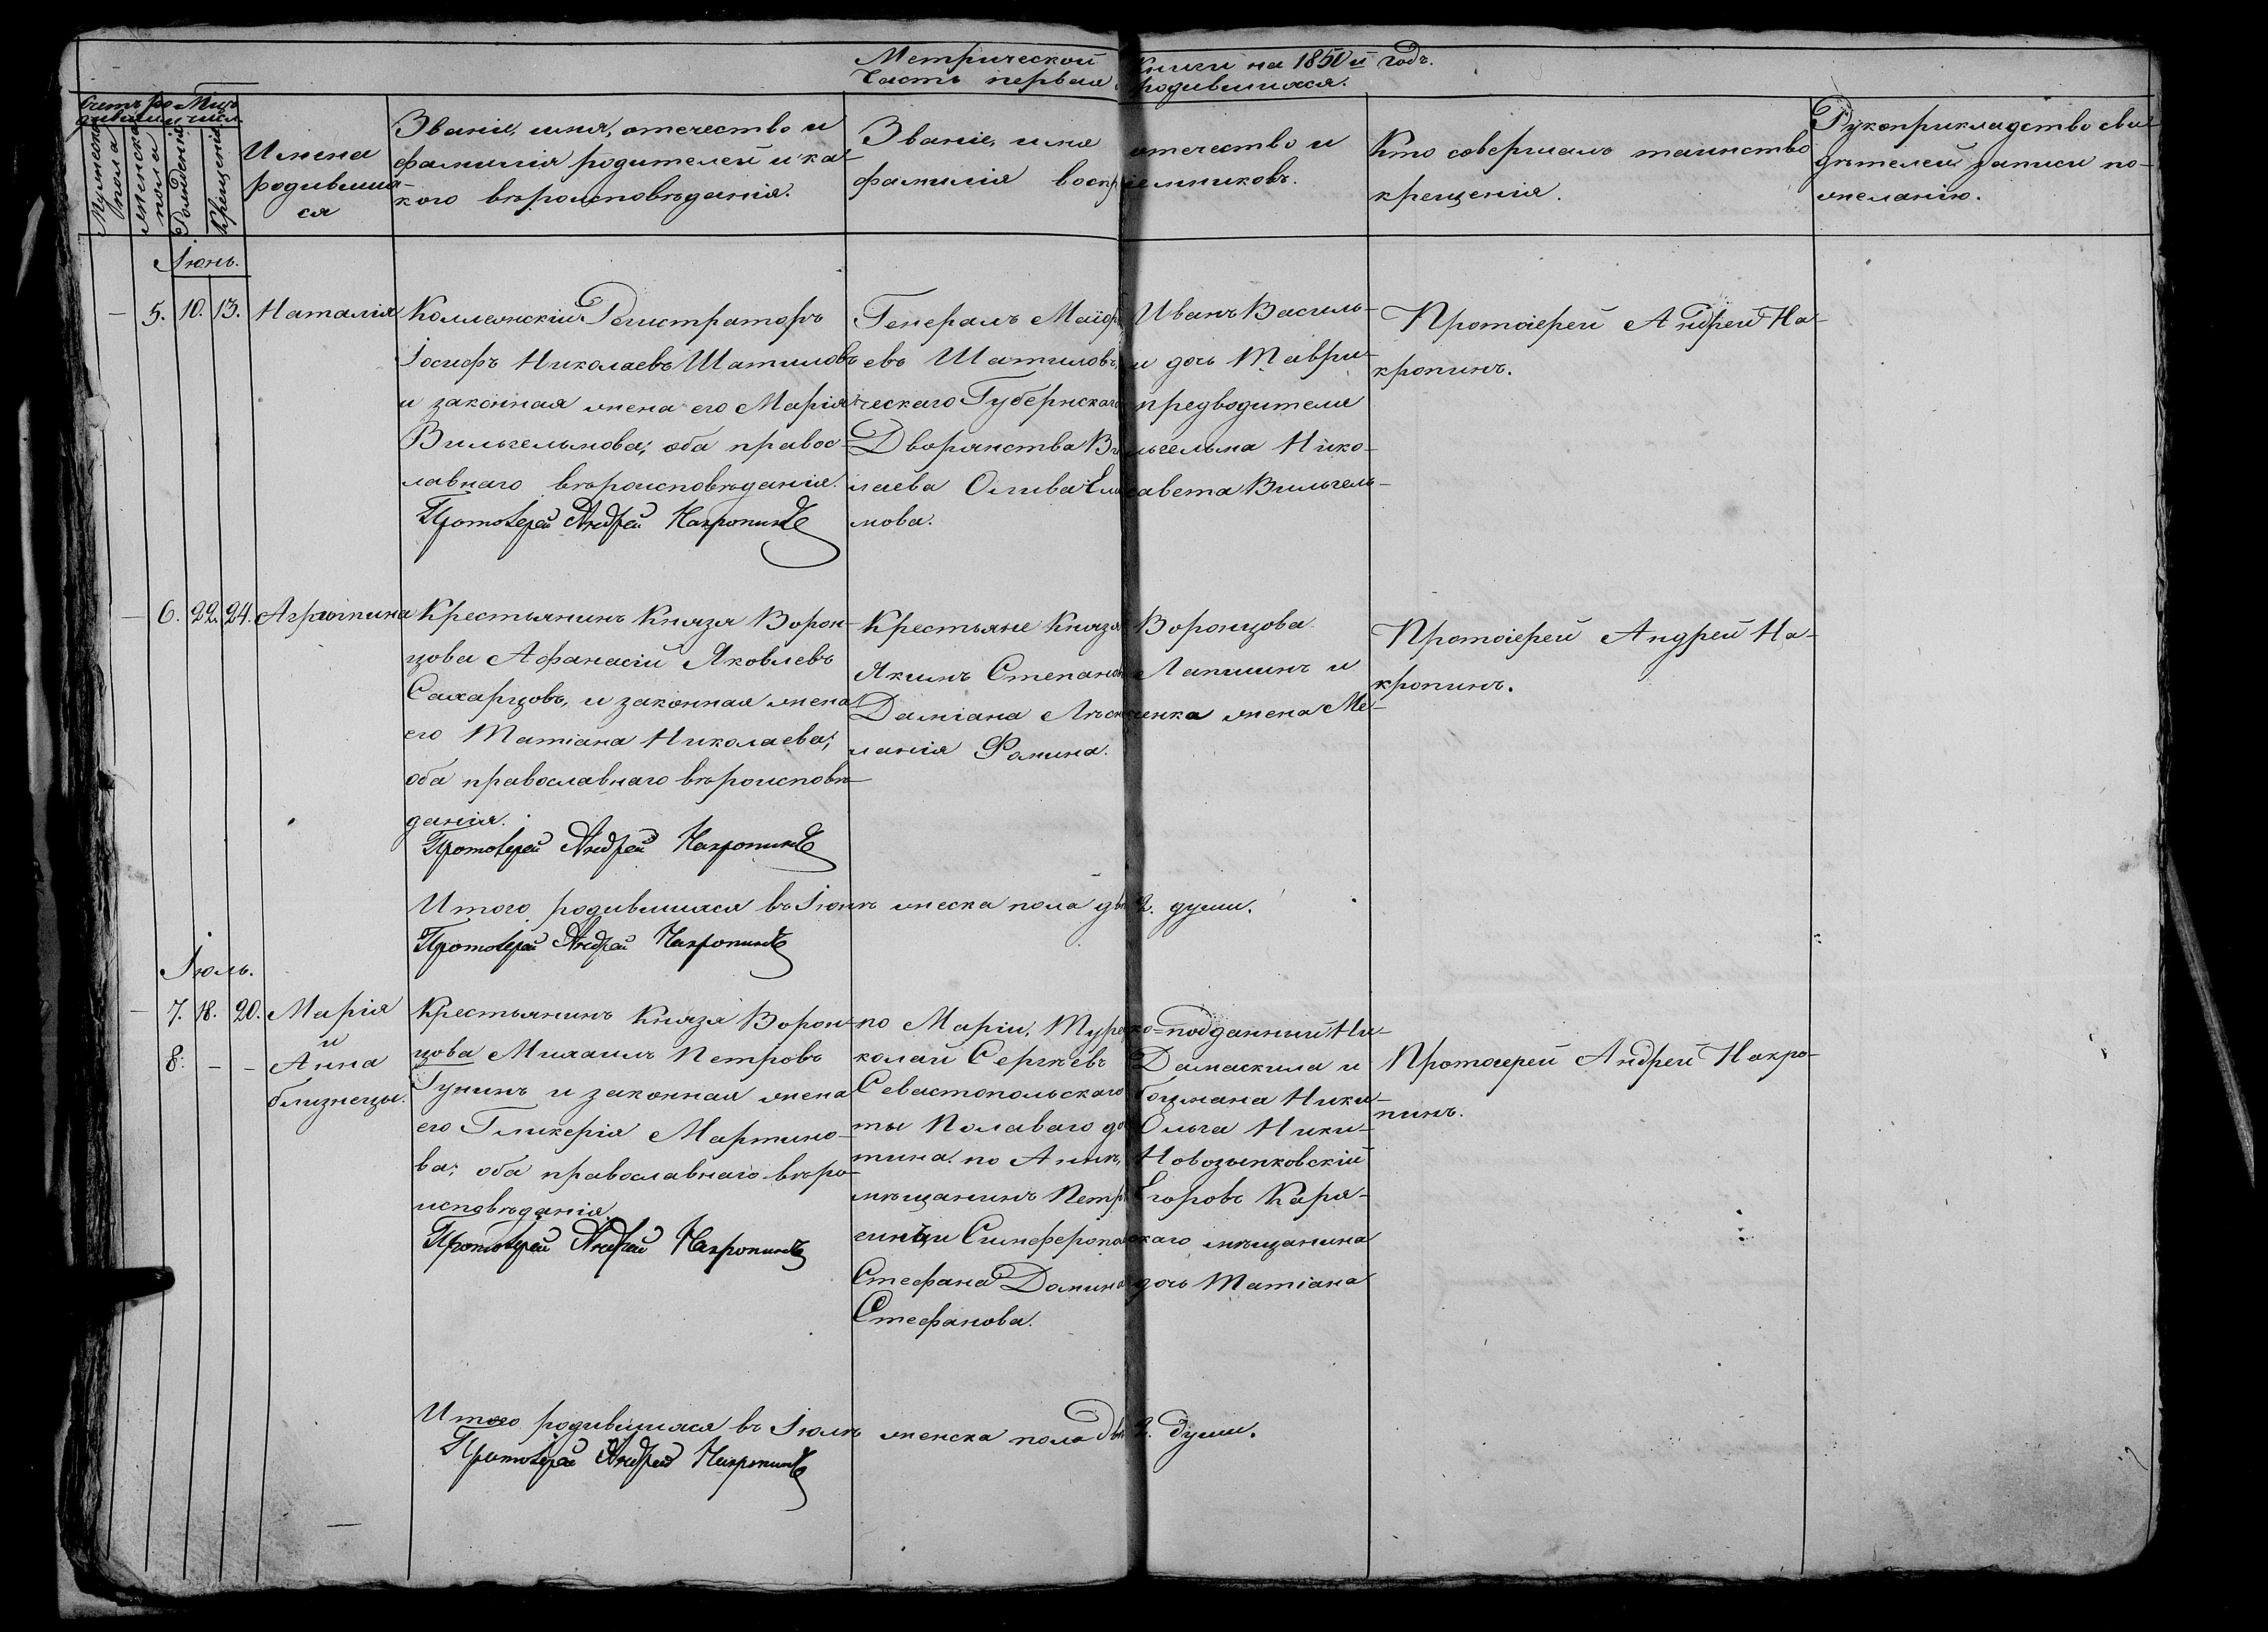 Метрической книги на 1850й годъ.
Часть первая родившихся.
Счетъ ро- Мѣс.
дивших. и число.
Мужеска пола
Женска пола
Рожденія
Крещенія
Имена
родивших-
ся
Званіе, имя, отечество и
фамилія родителей и ка-
кого вѣроисповѣданія.
Званіе, имя отечество и
фамилія воспріемниковъ.
Кто совершалъ таинство
крещенія.
Рукоприкладство сви-
дѣтелей записи по-
желанію.
Іюнь.
— 5. 10. 13. Наталія
Коллежскій Регистраторъ
Іосифъ Николаевъ Шатиловъ
и законная жена его Марія
Вильгельмова; оба правос-
лавнаго вѣроисповѣданія.
Протоіерей Андрей Накропинъ
Генералъ Маіоръ Иванъ Василь-
евъ Шатиловъ, и дочь Таври-
ческаго Губернскаго предводителя
Дворянства Вильгельма Нико-
лаева Олива Елисавета Вильгель-
мова.
Протоіерей Андрей На-
кропинъ.
— 6. 22. 24. Агрипина
Крестьянинъ Князя Ворон-
цова Афанасій Яковлевъ
Сахарцовъ, и законная жена
его Татіана Николаева;
оба православнаго вѣроисповѣ-
данія.
Протоіерей Андрей Накропинъ
Крестьяне Князя Воронцова
Якимъ Степановъ Лапшинъ и
Даміана жена Ме-
ланія Фомина.
Протоіерей Андрей На-
кропинъ.
Итого родившихся въ Іюнѣ женска пола двѣ 2. души.
Протоіерей Андрей Накропинъ
Іюль.
— 7. 18. 20. Марія
и
8. — — Анна
близнецы.
Крестьянинъ Князя Ворон-
цова Михаилъ Петровъ
Гунинъ и законная жена
его Гликерія Мартино-
ва; оба православнаго вѣро-
исповѣданія.
Протоіерей Андрей Накропинъ
по Маріи, Турецко-подданный Ни-
колай Сергѣевъ Дамаскила и
Севастопольскаго боцмана Ники-
ты Полаваго дочь Ольга Ники-
тина. по Аннѣ, Новозыпковскій
мѣщанинъ Петръ Егоровъ Каря-
гинъ и Симферопольскаго мѣщанина
Стефана Домина дочь Татіана
Стефанова.
Протоіерей Андрей Накро-
пинъ.
Итого родившихся въ Іюлѣ женска пола двѣ 2. души.
Протоіерей Андрей Накропинъ